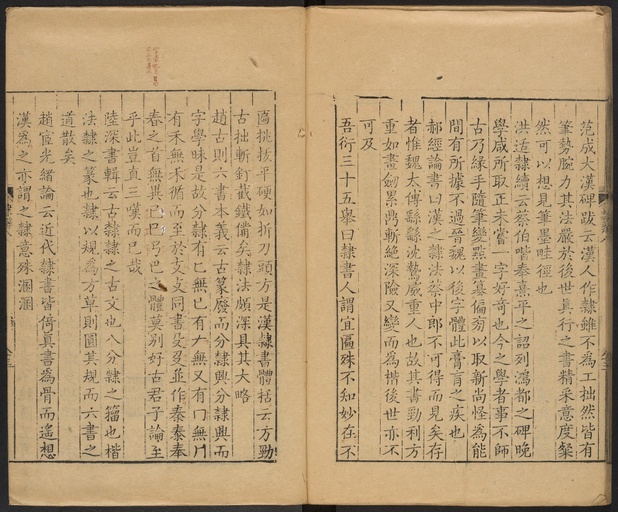 范成大漢碑跋云漢人作隸雖不為工拙然皆有
筆勢腕力其法嚴於後世真行之書精采意度粲
然可以想見筆墨畦徑也
洪适隸續云蔡伯喈奉熹平之詔列鴻都之碑晚
學咸所取正未嘗一字好奇也今之學者事不師
古乃緣手隨筆變㸃畫篡偏旁以取新尚怪為能
間有所據不過晉魏以後字體此膏肓之疾也
郝經論書曰漢之隸法蔡中郎不可得而見矣存
者惟魏太傅繇繇沈鷙威重人也故其書勁利方
重如畫劒累鼎斬絕深險又變而為楷後世亦不
可及
吾衍三十五舉曰隸書人謂宜匾殊不知妙在不
匾挑拔平硬如折刀頭方是漢隸書體括云方勁
古拙斬釘截鐵備矣隸法頗深具其大略
趙古則六書本義云古篆廢而分隸興分隸興而
字學昧是故分隸有匕無𠤎有𠂇無又有冂無⺆
有禾無禾循而至於支攴同書殳㕛並作泰奏奉
春之首無異㔾巳丂巴之體莫別好古君子論至
乎此豈直三嘆而已哉
陸深書輯云古隸隸之古文也八分隸之籀也楷
法隸之篆也隸以規為方草則圓其規而六書之
道散矣
趙宧光緒論云近代隸書皆倚真書為骨而遙想
漢為之亦謂之隸意殊溷溷